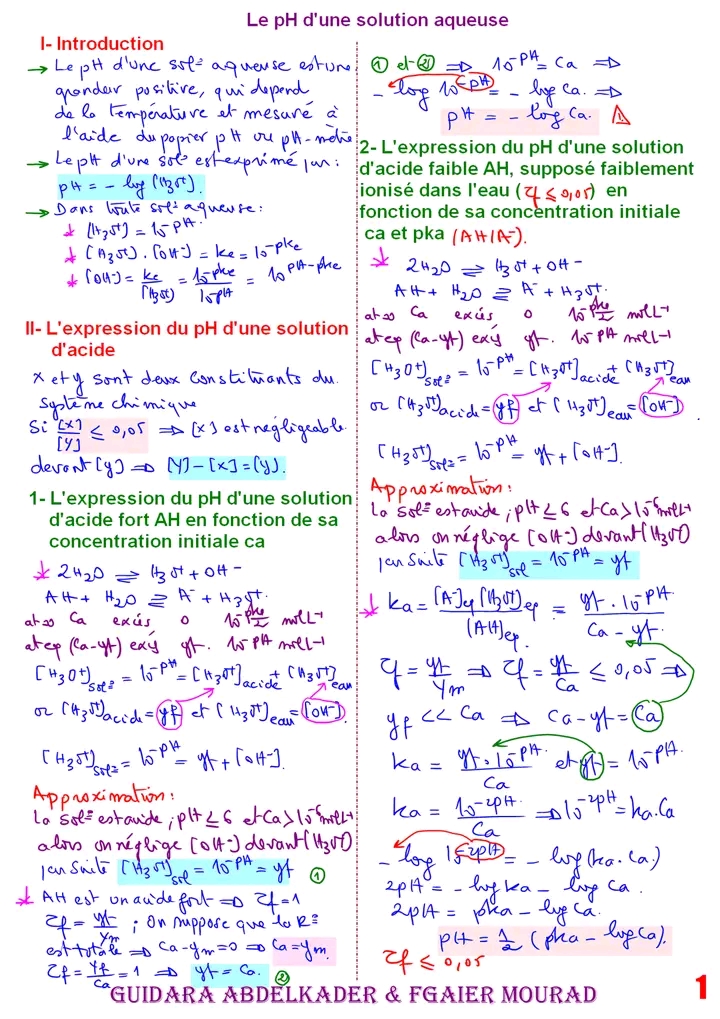 Le pH d'une solution aqueuse
I- Introduction
→ Le pH d'une sol° aqueuse est une
grandeur positive, qui dépend
de la température et mesuré à
l'aide du papier pH ou pH-mètre
→ Le pH d'une sol° est exprimé par :
pH = - log [H3O+].
→ Dans toute sol° aqueuse :
* [H3O+] = 10^-pH.
* [H3O+] . [OH-] = Ke = 10^-pKe
* [OH-] = Ke/[H3O+] = 10^-pKe/10^-pH = 10^pH-pKe
II- L'expression du pH d'une solution
d'acide
x et y sont deux constituants du
système chimique
Si [x]/[y] ≤ 0,05 ⇒ [x] est négligeable
devant [y] ⇒ [y] - [x] = [y].
1- L'expression du pH d'une solution
d'acide fort AH en fonction de sa
concentration initiale ca
* 2H2O ⇌ H3O+ + OH-
AH + H2O ⇌ A- + H3O+.
at=0 Ca excés 0 10^-pKe/2 mol L-1
at eq (Ca-yf) excés yf. 10^-pH mol L-1
[H3O+]sol° = 10^-pH = [H3O+]acide + [H3O+]eau
or [H3O+]acide = yf et [H3O+]eau = [OH-]
[H3O+]sol° = 10^-pH = yf + [OH-].
Approximation :
La sol° est acide ; pH ≤ 6 et Ca > 10^-6 mol L-1
alors on néglige [OH-] devant [H3O+]
par suite [H3O+]sol = 10^-pH = yf ①
* AH est un acide fort ⇒ τf = 1
τf = yf/ym ; on suppose que la R°
est totale ⇒ Ca - ym = 0 ⇒ Ca = ym.
τf = yf/Ca = 1 ⇒ yf = Ca. ②
① et ② ⇒ 10^-pH = Ca ⇒
- log 10^-pH = - log Ca. ⇒
pH = - log Ca.
2- L'expression du pH d'une solution
d'acide faible AH, supposé faiblement
ionisé dans l'eau ( τf ≤ 0,05 ) en
fonction de sa concentration initiale
ca et pka (AH/A-).
* 2H2O ⇌ H3O+ + OH-
AH + H2O ⇌ A- + H3O+.
at=0 Ca excés 0 10^-pKe/2 mol L-1
at eq (Ca-yf) excés yf. 10^-pH mol L-1
[H3O+]sol° = 10^-pH = [H3O+]acide + [H3O+]eau
or [H3O+]acide = yf et [H3O+]eau = [OH-]
[H3O+]sol° = 10^-pH = yf + [OH-].
Approximation :
La sol° est acide ; pH ≤ 6 et Ca > 10^-6 mol L-1
alors on néglige [OH-] devant [H3O+]
par suite [H3O+]sol = 10^-pH = yf
* Ka = [A-]eq [H3O+]eq/[AH]eq = yf . 10^-pH/Ca - yf.
τf = yf/ym ⇒ τf = yf/Ca ≤ 0,05 ⇒
yf << Ca ⇒ Ca - yf = Ca
Ka = yf . 10^-pH/Ca et yf = 10^-pH.
Ka = 10^-2pH/Ca ⇒ 10^-2pH = Ka.Ca
- log 10^-2pH = - log (Ka . Ca)
2pH = - log Ka - log Ca.
2pH = pKa - log Ca.
pH = 1/2 (pKa - log Ca).
τf ≤ 0,05
GUIDARA ABDELKADER & FGAIER MOURAD
1